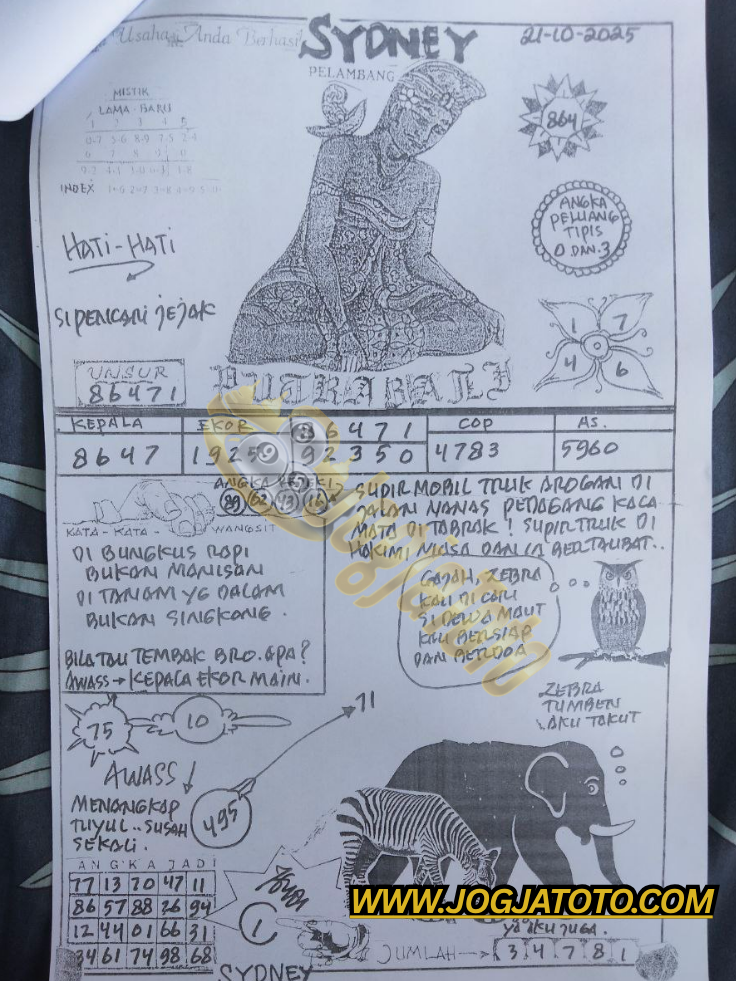 Usaha Anda Berhasil
SYDNEY
21-10-2025
PELAMBANG
MISTIK
LAMA - BARU
INDEX
864
ANGKA
PELUANG
TIPIS
0 DAN 3
HATI-HATI
SI PENCARI JEJAK
1 7
4 6
UNSUR
86471
PUTRA BALI
KEPALA EKOR 86471 COP AS.
8647 19259 92350 4783 5960
KATA - KATA - WANGSIT
DI BUNGKUS RAPI
BUKAN MANISAN
DI TANAM YG DALAM
BUKAN SINGKONG.
BILA TAU TEMBAK BRO. APA?
AWASS → KEPALA EKOR MAIN.
SUPIR MOBIL TRUK AROGAN DI
JALAN NANAS PEDAGANG KACA
MATA DI TABRAK! SUPIR TRUK DI
HAKIMI MASA DAN IA BERTAUBAT..
GAJAH, ZEBRA
KAU DI CARI
SI DEWA MAUT
KAU BERSIAP
DAN BERDOA
ZEBRA
TUMBEN
AKU TAKUT
75
10
71
AWASS
495
MENANGKAP
TUYUL.. SUSAH
SEKALI.
ANGKA JADI
77 13 70 47 11
86 57 88 26 94
12 44 01 66 31
34 61 74 98 68
1
WWW.JOGJATOTO.COM
YA AKU JUGA.
JUMLAH → 3 4 7 8 1
SYDNEY
Jogjatoto